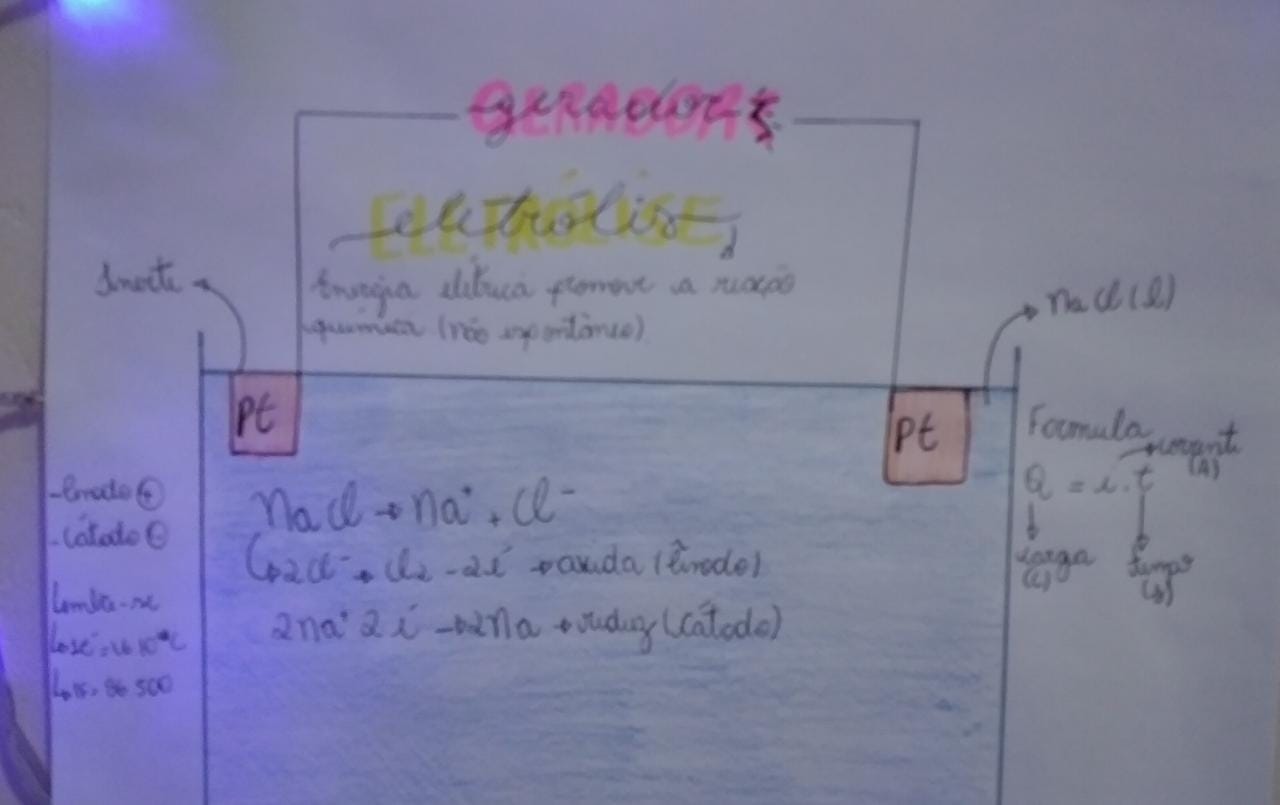 GERADOR
gerador
ELETRÓLISE
eletrólise
Energia elétrica promove a reação
química (não espontânea)
Inerte
NaCl(l)
Pt
Pt
Formula
corrente
(A)
Q = i.t
carga
(C)
tempo
(s)
-ânodo +
-cátodo -
NaCl → Na⁺ + Cl⁻
↳2Cl⁻ → Cl₂ -2é → oxida (ânodo)
2Na⁺ 2é → 2Na → reduz (Cátodo)
Lembre-se
96 500